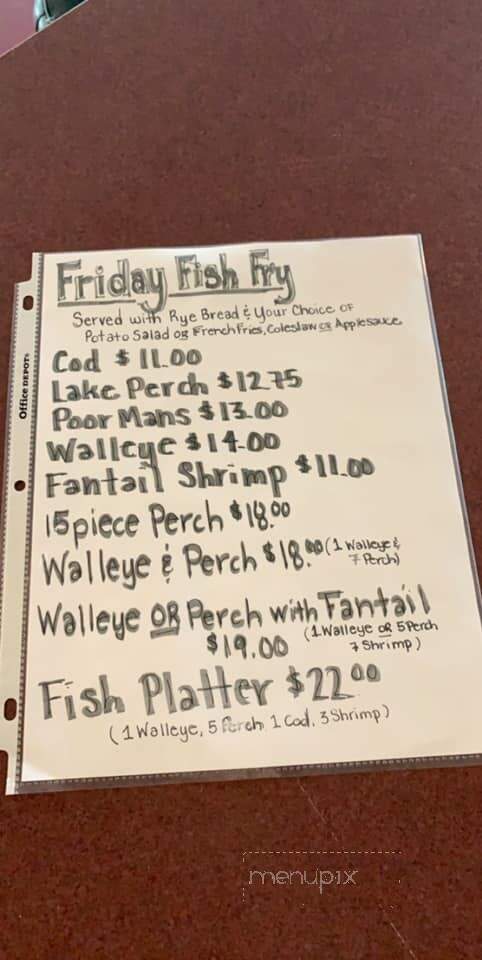 Friday Fish Fry
Served with Rye Bread & Your Choice OF
Potato Salad OR French Fries, Coleslaw OR Applesauce
Cod $11.00
Lake Perch $12.75
Poor Mans $13.00
Walleye $14.00
Fantail Shrimp $11.00
15 piece Perch $18.00
Walleye & Perch $18.00 (1 Walleye &
7 Perch)
Walleye OR Perch with Fantail
$19.00 (1 Walleye OR 5 Perch
7 Shrimp)
Fish Platter $22.00
(1 Walleye, 5 Perch, 1 Cod, 3 Shrimp)
Office DEPOT
menupix